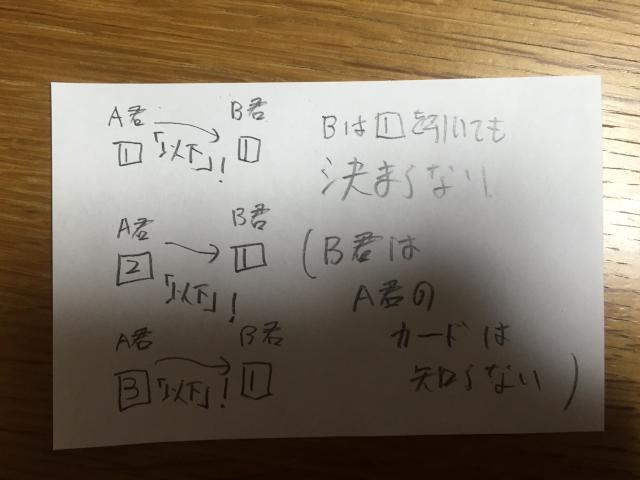 A君 B君
1 「以下」! 1
A君 B君
2 「以下」! 1
A君 B君
3 「以下」! 1
Bは1を引いても
決まらない
(B君は
A君の
カードは
知らない)